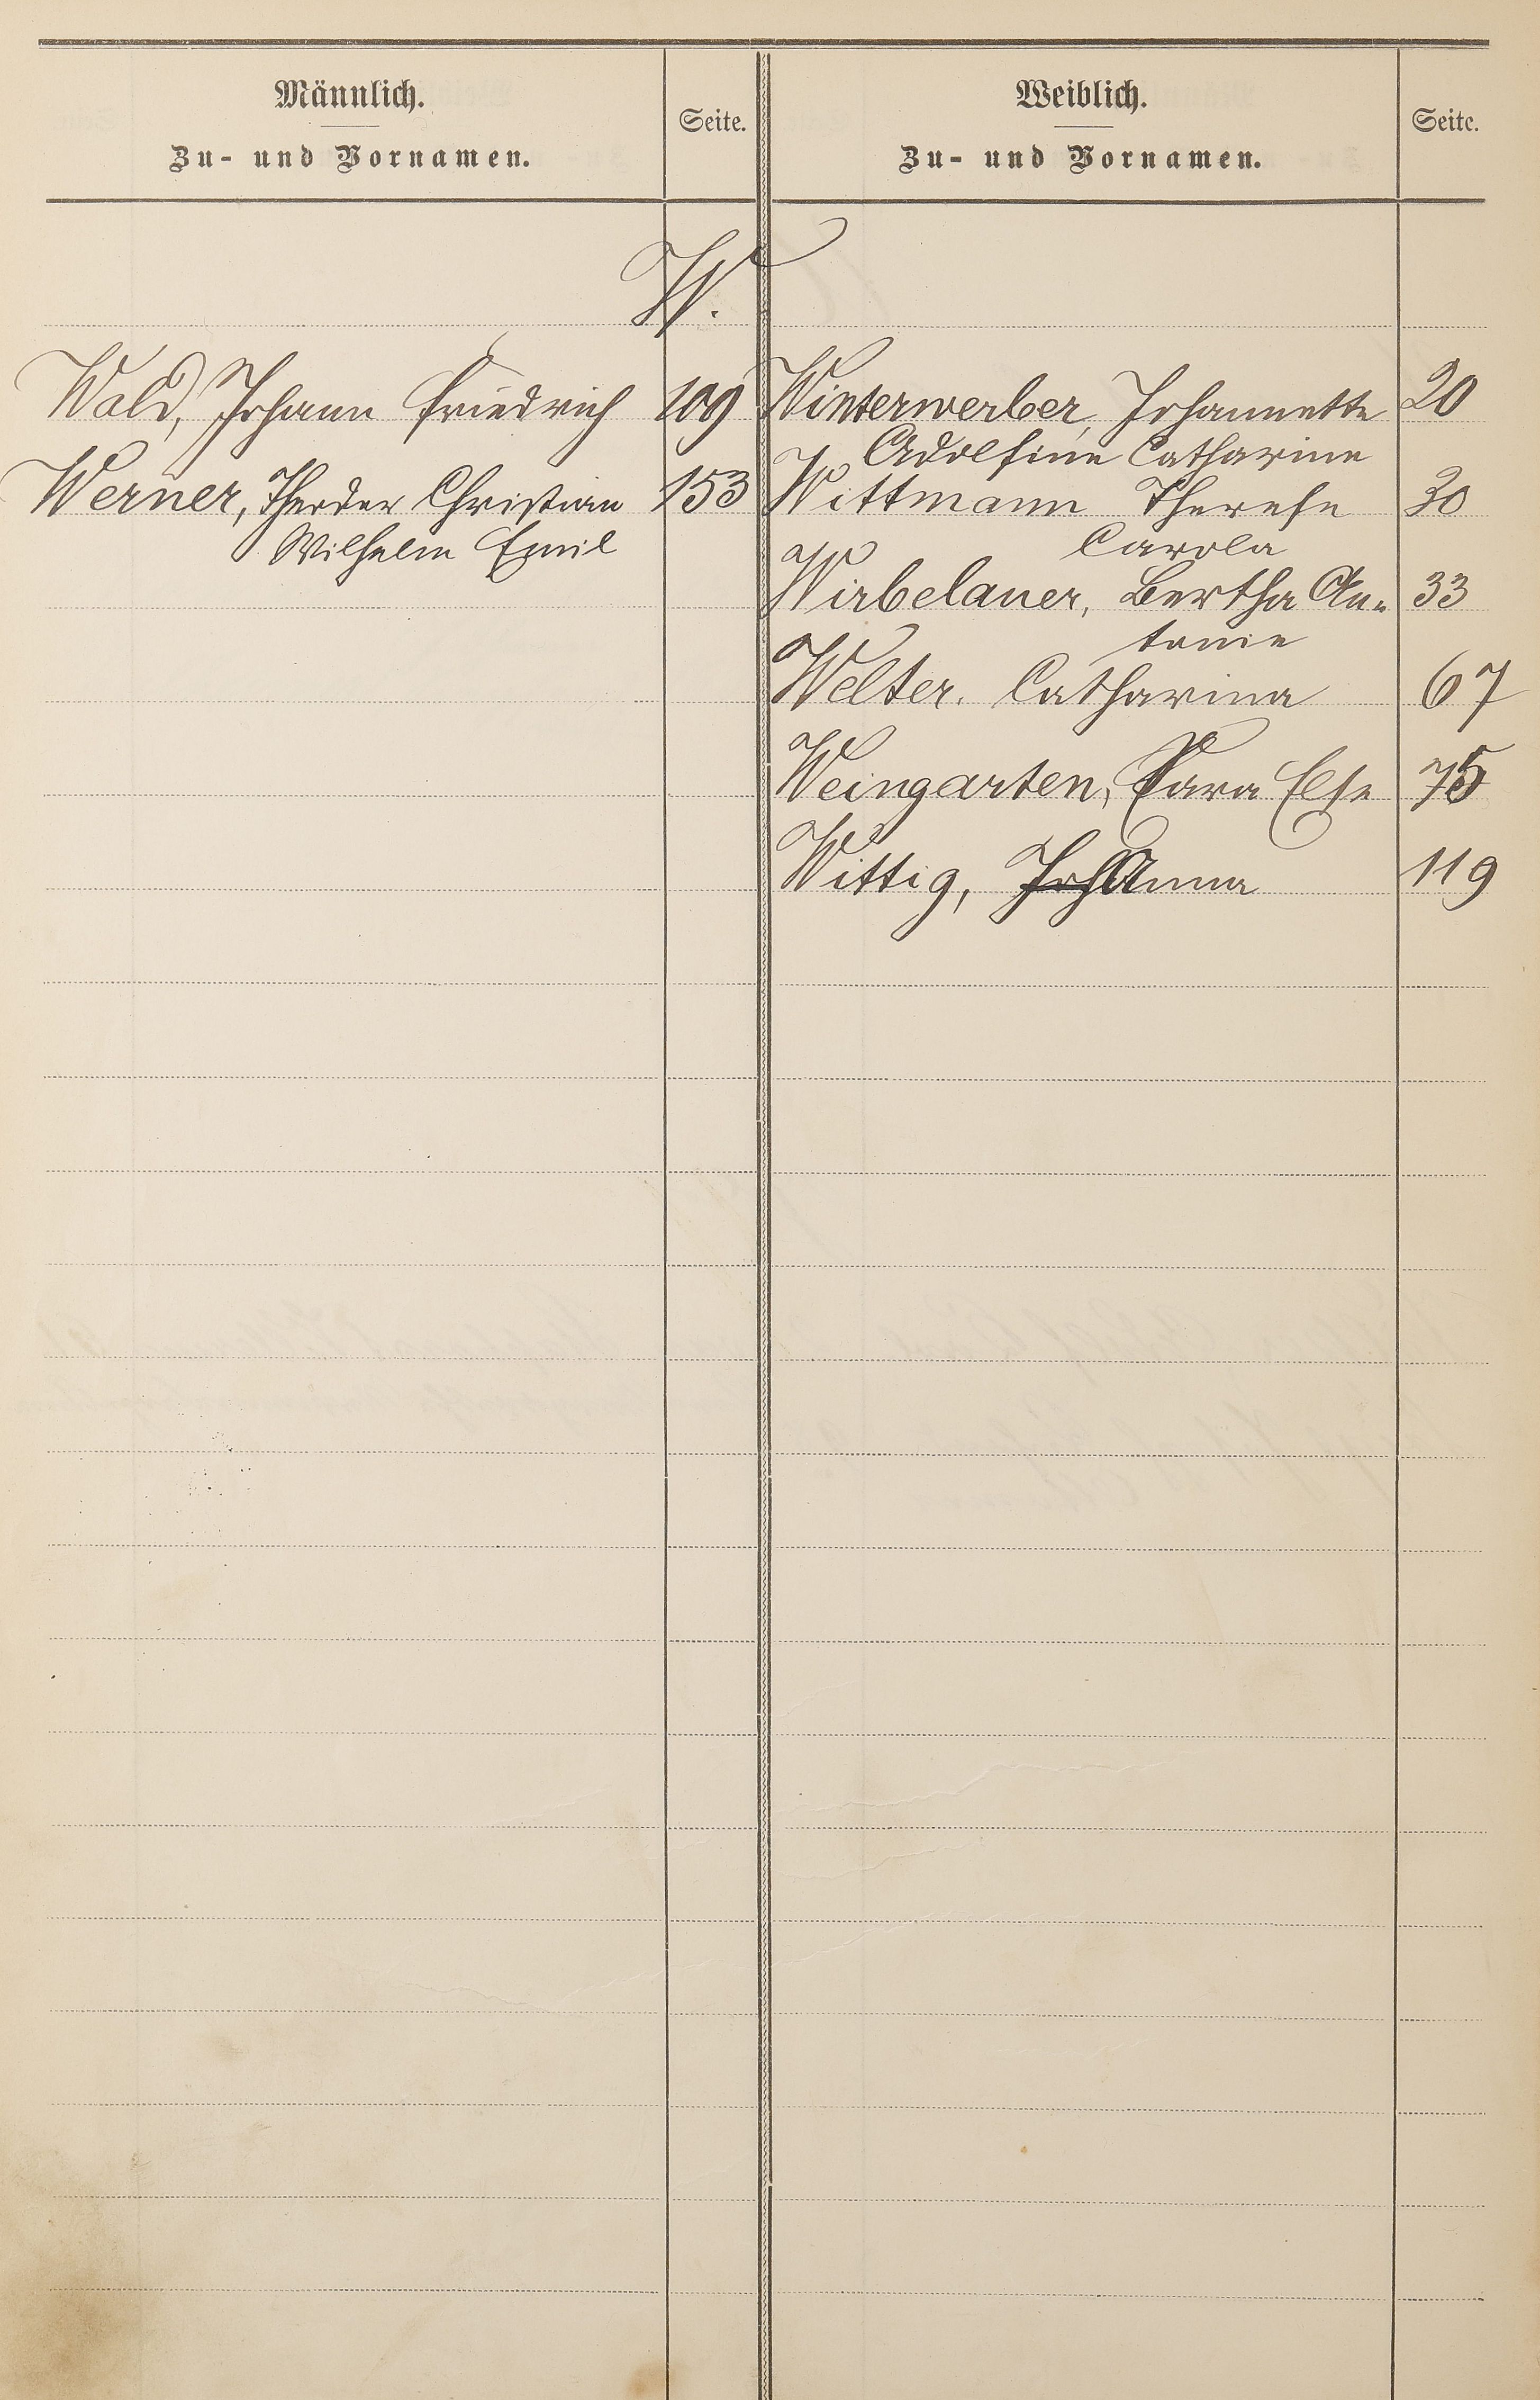 Männlich.
Zu- und Vornamen.
Seite.
Weiblich.
Zu- und Vornamen.
Seite.
W.
Wald, Johann Friedrich 109
Werner, Theodor Christian 153
Wilhelm Emil
Winterwerber, Johannette 20
Adolfine Catharine
Wittmann Therese 30
Carola
Wirbelauer, Bertha An- 33
tonie
Welter. Catharina 67
Weingarten, Else 75
Wittig, Anna 119